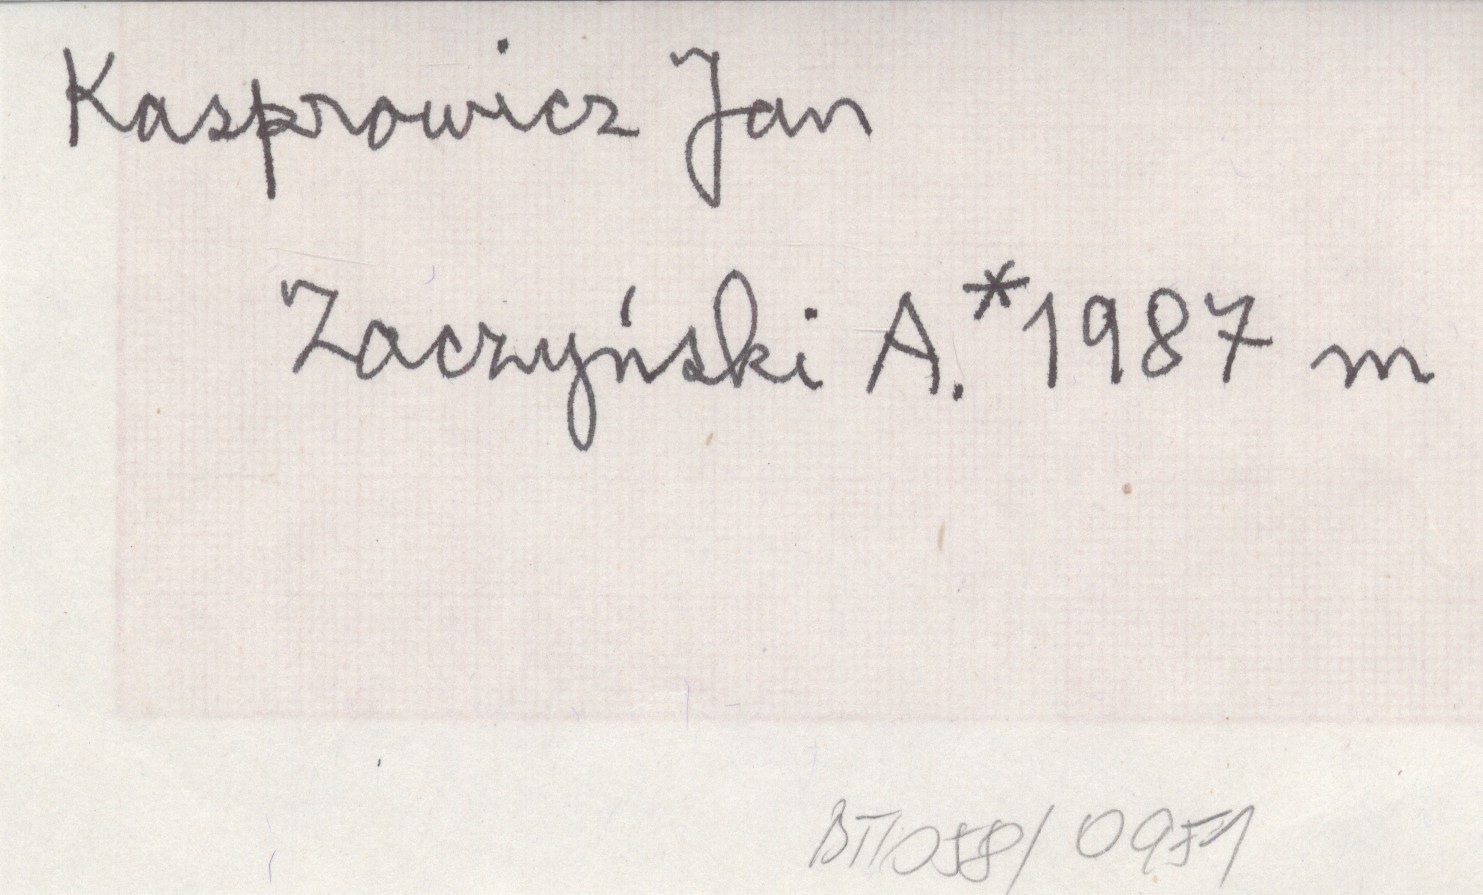 Kasprowicz Jan
Zaczyński A.*1987 m
BTI058/0951